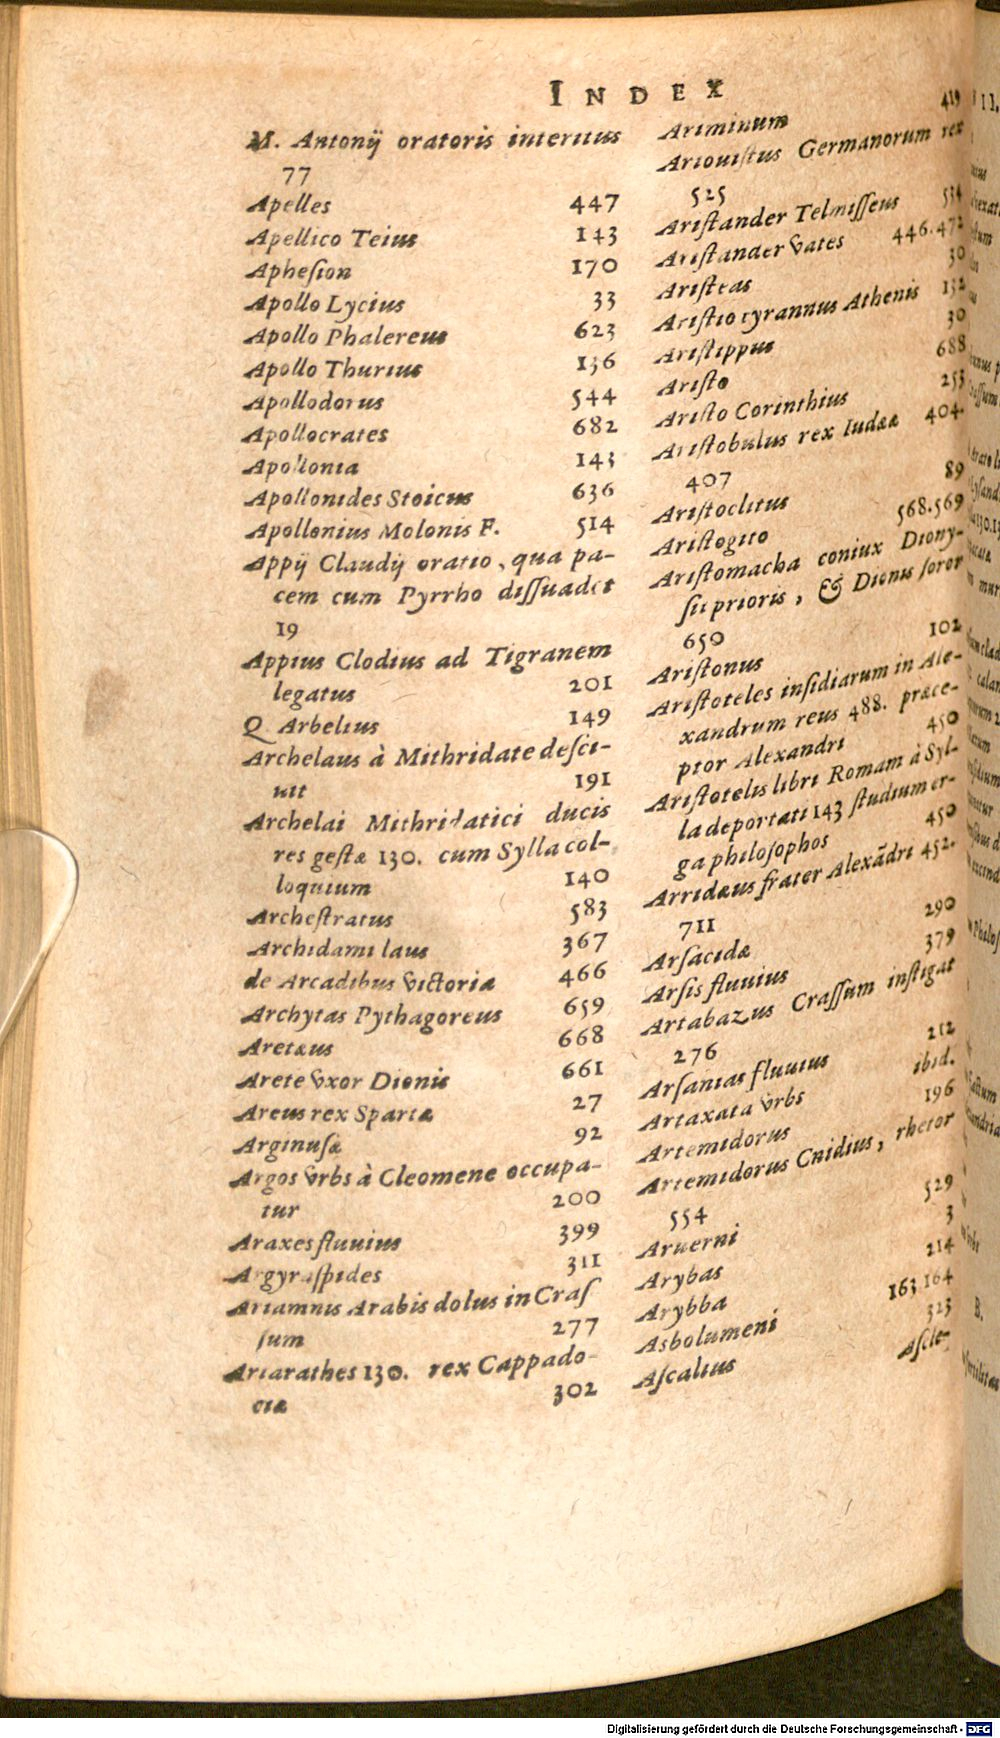 INDEX
M. Antonij oratoris interitus
77
Apelles 447
Apellico Teius 143
Aphesion 170
Apollo Lycius 33
Apollo Phalereus 623
Apollo Thurius 136
Apollodorus 544
Apollocrates 682
Apollonia 143
Apollonides Stoicus 636
Apollonius Molonis F. 514
Appij Claudij oratio, qua pa-
cem cum Pyrrho dissuadet
19
Appius Clodius ad Tigranem
legatus 201
Q. Arbelius 149
Archelaus à Mithridate desci-
uit 191
Archelai Mithridatici ducis
res gestæ 130. cum Sylla col-
loquium 140
Archestratus 583
Archidami laus 367
de Arcadibus victoria 466
Archytas Pythagoreus 659
Aretæus 668
Arete vxor Dionis 661
Areus rex Spartæ 27
Arginusæ 92
Argos vrbs à Cleomene occupa-
tur 200
Araxes fluuius 399
Argyraspides 311
Ariamnis Arabis dolus in Cras
sum 277
Ariarathes 130. rex Cappado-
ciæ 302
Ariminum 419
Ariouistus Germanorum rex
525
Aristander Telmisseus 534
Aristander vates 446.472
Aristeas 30
Aristio tyrannus Athenis 132
Aristippus 30
Aristo 688
Aristo Corinthius 253
Aristobulus rex Iudææ 404.
407
Aristoclitus 89
Aristogito 568.569
Aristomacha coniux Diony-
sii prioris, & Dionis soror
650
Aristonus 102
Aristoteles insidiarum in Ale-
xandrum reus 488. præce-
ptor Alexandri 450
Aristotelis libri Romam à Syl-
la deportati 143 studium er-
ga philosophos 450
Arridæus frater Alexādri 452.
711
Arsacidæ 290
Arsis fluuius 379
Artabazus Crassum instigat
276
Arsanias fluuius 212
Artaxata vrbs ibid.
Artemidorus 196
Artemidorus Cnidius, rhetor
554
Aruerni 529
Arybas 3
Arybba 214
Asbolumeni 163 164
Ascalius 323
Ascle-
Digitalisierung gefördert durch die Deutsche Forschungsgemeinschaft - DFG